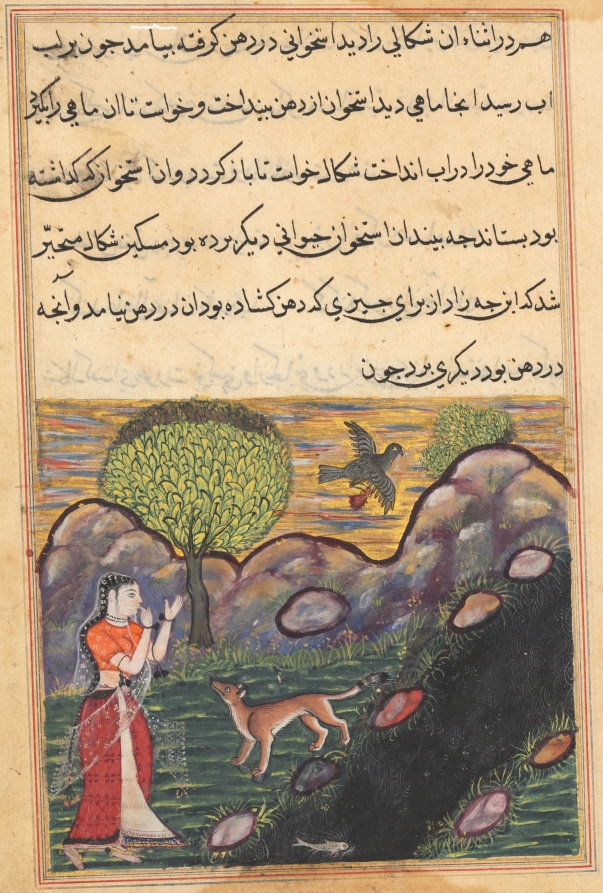 هم در اثناء ان شکالی را دید استخوانی در دهن کرفته بیامد جون بر لب
اب رسید انجا ماهی دید استخوان از دهن بینداخت و خواست تا ان ماهی را بکیرد
ماهی خود را در اب انداخت شکال خواست تا باز کردد و ان استخوان که کذاشته
بود بستاند جه بیند ان استخوان حیوانی دیکر برده بود مسکین شکال متحیّر
شد که این جه زاد از برای جیزی که دهن کشاده بود ان در دهن نیامد و آنجه
در دهن بود دیکری برد جون